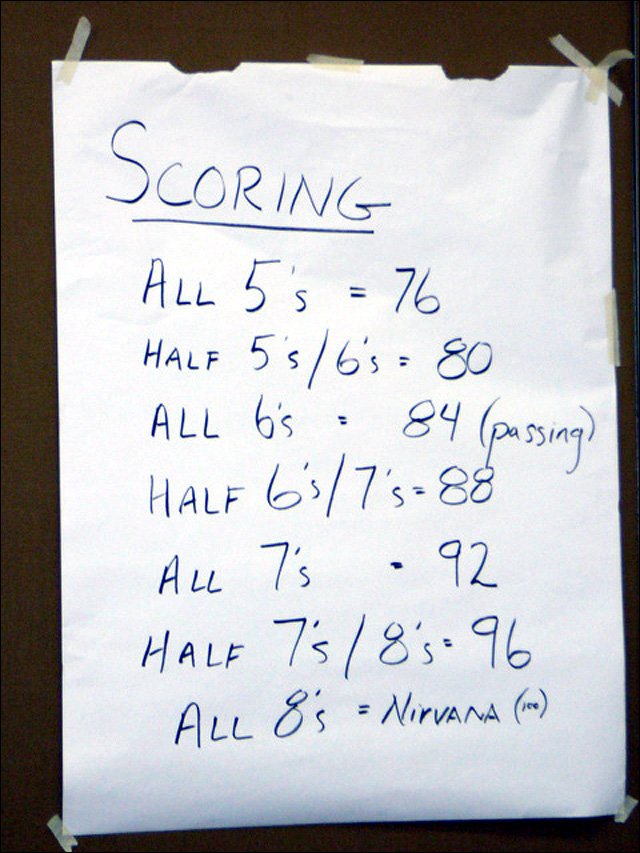 SCORING
ALL 5's = 76
HALF 5's/6's = 80
ALL 6's = 84 (passing)
HALF 6's/7's = 88
ALL 7's = 92
HALF 7's/8's = 96
ALL 8's = NIRVANA (100)